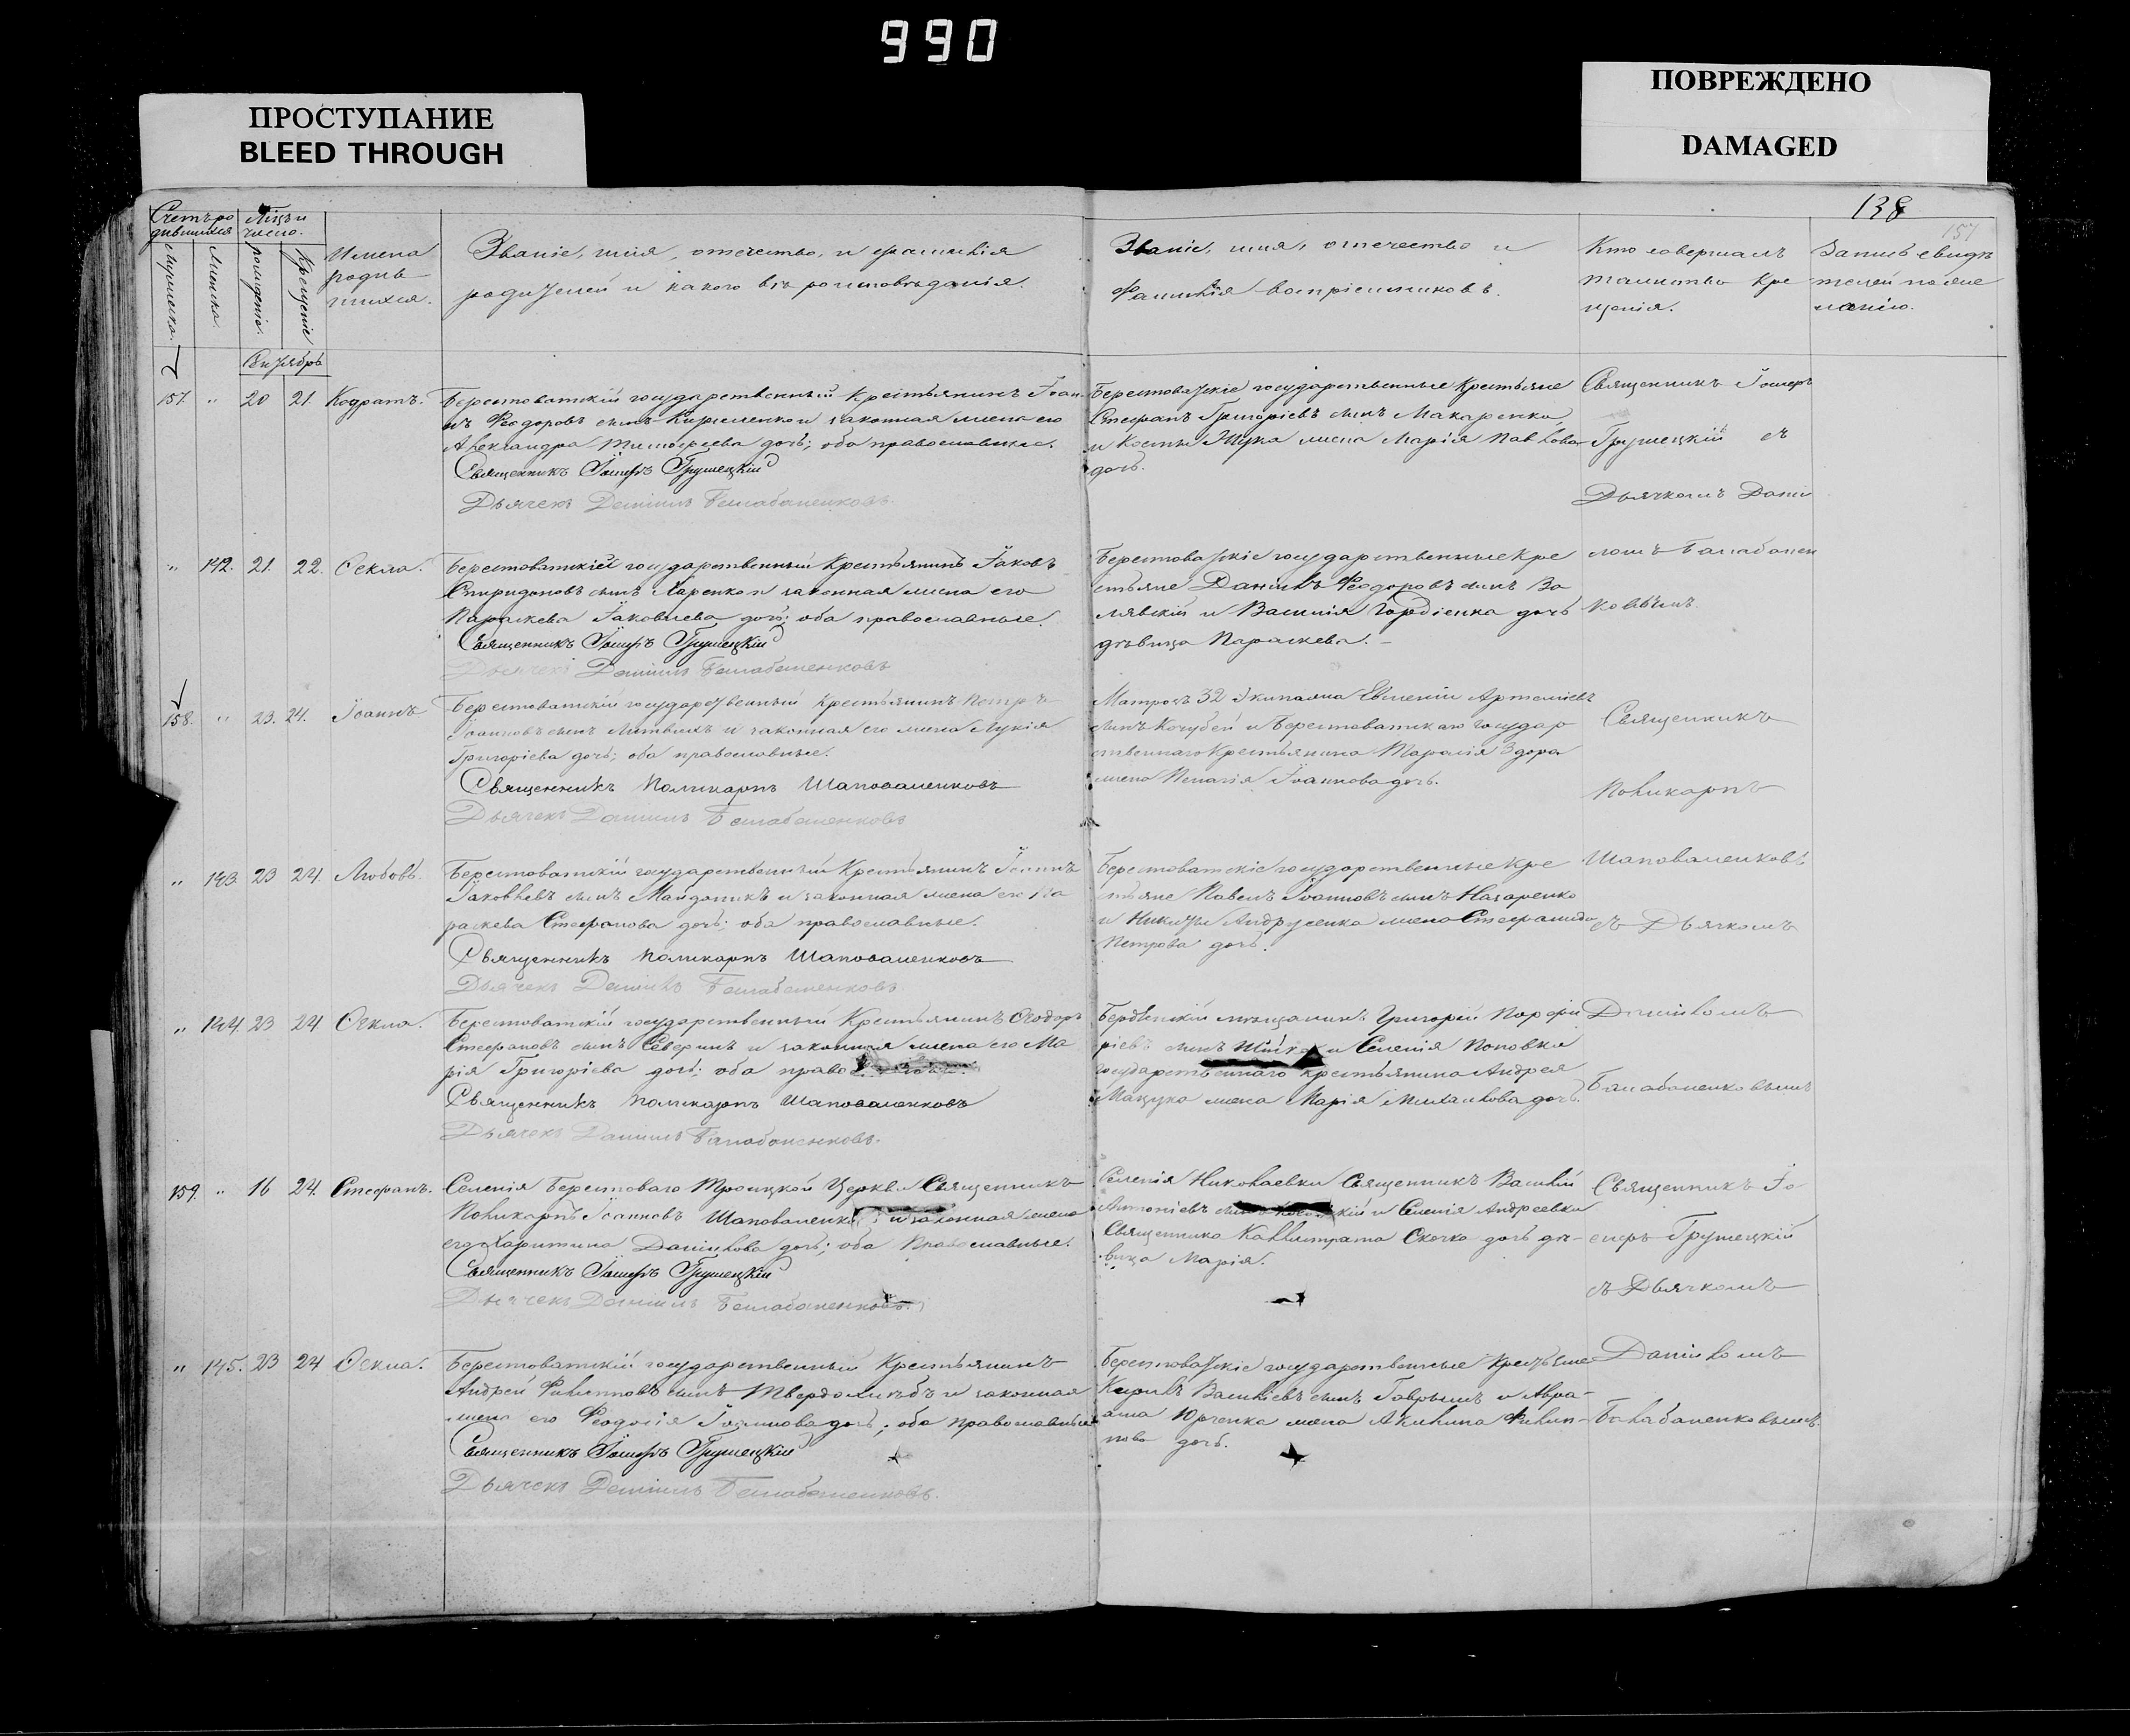 990
ПРОСТУПАНИЕ
BLEED THROUGH
ПОВРЕЖДЕНО
DAMAGED
138
157
Счетъ ро
дившихся
Мѣсяцъ и
число.
Мужеска.
Женска.
рожденія.
Крещенія
Имена
родив
шихся.
Званіе, имя, отечество, и фамилія
родителей и какого вѣроисповѣданія.
Званіе, имя, отечество и
Фамилія воспріемниковъ.
Кто совершалъ
таинство кре
щенія.
Запись свидѣ
телей по же
ланію.
Октябрь
157. " 20 21. Кодратъ.
Берестоватскій государственный Крестьянинъ Іоан
нъ Ѳеодоровъ сынъ Кириленко и законная жена его
Александра Тимоѳеева дочь; оба православные.
Священникъ Іосифъ Грушецкій
Дьячекъ Даніилъ Балабаненковъ.
Берестоватскіе государственные Крестьяне
Стефанъ Григоріевъ сынъ Макаренко,
и Косты жена Марія Павлова
дочь.
Священникъ Іосифъ
Грушецкій съ
Дьячкомъ Дані
" 142. 21. 22. Ѳекла.
Берестоватскій государственный Крестьянинъ Іаковъ
Спиридоновъ сынъ Харенко и законная жена его
Параскева Іаковлева дочь; оба православные.
Священникъ Іосифъ Грушецкій
Дьячекъ Даніилъ Балабаненковъ
Берестоватскіе государственные Кре
стьяне Даніилъ Ѳеодоровъ сынъ Во
лявскій и Василія Гордіенка дочь
дѣвица Параскева.
ломъ Балабанен
ковымъ.
158. " 23. 24. Іоаннъ
Берестоватскій государственный Крестьянинъ Петръ
Іоанновъ сынъ Литвинъ и законная его жена Лукія
Григоріева дочь; оба православные.
Священникъ Поликарпъ Шаповаленковъ
Дьячекъ Даніилъ Балабаненковъ
Матросъ 32 Экипажа Евгеній Артеміевъ
сынъ Кочубей и Берестоватскаго государ
ственнаго Крестьянина Тарасія Здора
жена Пелагія Іоаннова дочь.
Священникъ
Поликарпъ
" 143. 23 24. Любовь.
Берестоватскій государственный Крестьянинъ Іоаннъ
Іаковлевъ сынъ Майданикъ и законная жена его Па
раскева Стефанова дочь; оба православные.
Священникъ Поликарпъ Шаповаленковъ
Дьячекъ Даніилъ Балабаненковъ
Берестоватскіе государственные Кре
стьяне Павелъ Іоанновъ сынъ Назаренко
и Никиты Андрусенка жена Стефанида
Петрова дочь.
Шаповаленковъ
съ Дьячкомъ
" 144. 23 24 Ѳекла.
Берестоватскій государственный Крестьянинъ Ѳеодоръ
Стефановъ сынъ Северинъ и законная жена его Ма
рія Григоріева дочь; оба право
Священникъ Поликарпъ Шаповаленковъ
Дьячекъ Даніилъ Балабаненковъ.
Бердянскій мѣщанинъ Григорій Порфи
ріевъ сынъ и Селенія Поповки
государственнаго крестьянина Андрея
Мацука жена Марія Михаилова дочь.
Даніиломъ
Балабаненковымъ
159. " 16 24. Стефанъ.
Селенія Берестоваго Троицкой Церкви Священникъ
Поликарпъ Іоанновъ Шаповаленко и законная жена
его Харитина Даніилова дочь; оба Православные.
Священникъ Іосифъ Грушецкій
Дьячекъ Даніилъ Балабаненковъ.
Селенія Николаевки Священникъ Василій
Антоніевъ и Селенія Андреевки
Священника Каллистрата Скочко дочь дѣ-
вица Марія.
Священникъ Іо
сифъ Грушецкій
съ Дьячкомъ
" 145. 23 24 Ѳекла.
Берестоватскій государственный Крестьянинъ
Андрей Филипповъ сынъ Твердохлѣбъ и законная
жена его Ѳеодосія Іоаннова дочь; оба православные
Священникъ Іосифъ Грушецкій
Дьячекъ Даніилъ Балабаненковъ.
Берестоватскіе государственные Крестьяне
Кирилъ Василіевъ сынъ Гаврышъ и Авра-
ама Юрченка жена Акилина Филип-
пова дочь.
Даніиломъ
Балабаненковымъ.